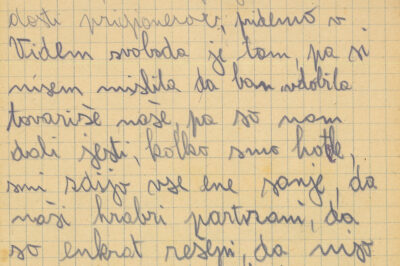 dosti prisjonerov, pridemo v
Videm svoboda je tam, pa si
nisem mislila da ban vdobila
tovariše naše, pa so nam
dali jesti, kolko smo hotle,
smi zdijo vse ene sanje, da
naši hrabri partizani, da
so enkrat rešeni, da nijo